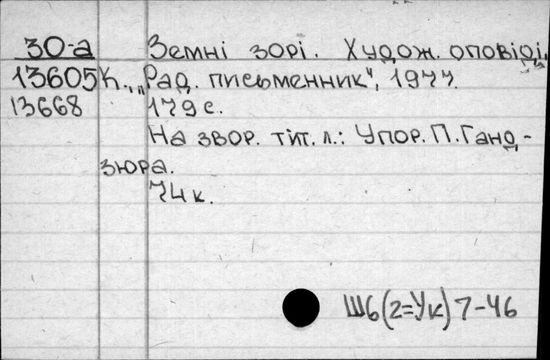 30-а Земні зорі. Худож. оповіді.
13605 К., „Рад. письменник“, 1977.
13668 179 с.
На звор. тит. л.: Упор. П. Ганд-
зюра.
74 к.
Ш6(2=Ук)7-46